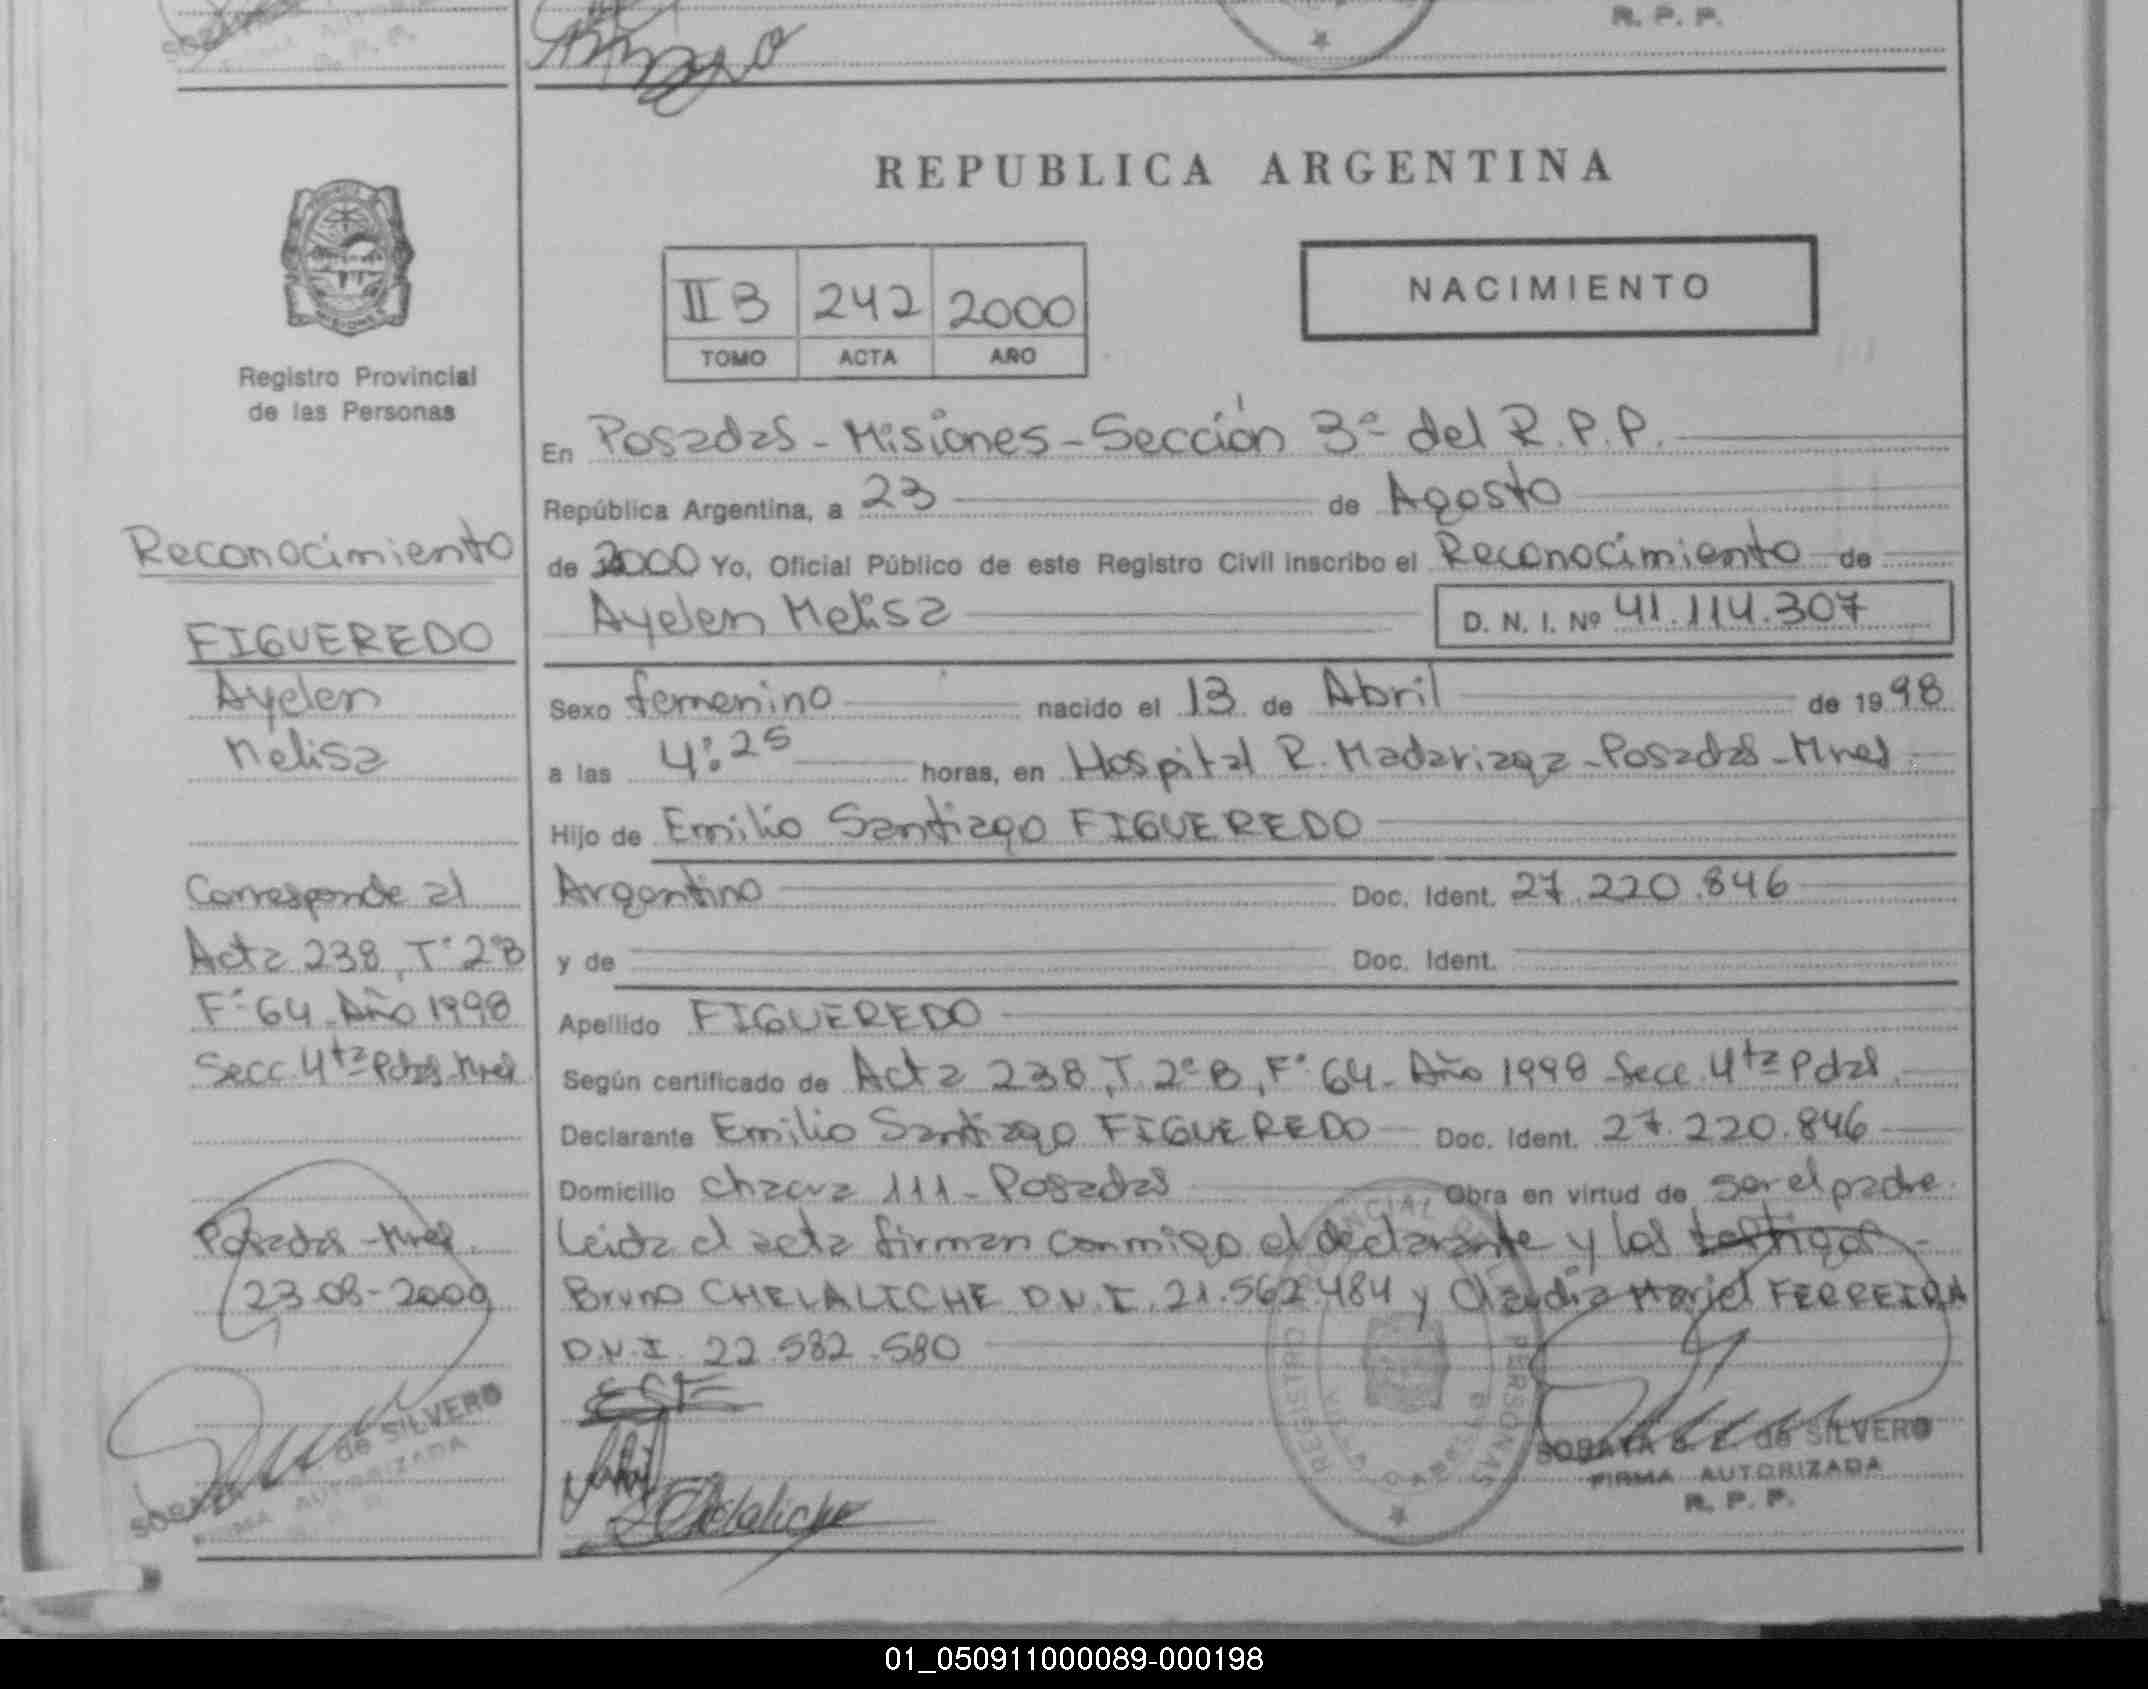 R. P. P.
REPUBLICA ARGENTINA
II B 242 2000
TOMO ACTA AÑO
NACIMIENTO
Registro Provincial
de las Personas
Reconocimiento
FIGUEREDO
Ayelen
Melisa
Corresponde al
Acta 238, T° 2°B
F° 64 Año 1998
Secc. 4ta Pdas. Mnes
Posadas - Mnes.
23-08-2000
de SILVERO
FIRMA AUTORIZADA
En Posadas - Misiones - Sección 3ª del R.P.P.
República Argentina, a 23 de Agosto
de 2000 Yo, Oficial Público de este Registro Civil inscribo el Reconocimiento de
Ayelen Melisa D. N. I. Nº 41.114.307
Sexo femenino nacido el 13 de Abril de 1998
a las 4:25 horas, en Hospital R. Madariaga - Posadas - Mnes
Hijo de Emilio Santiago FIGUEREDO
Argentino Doc. Ident. 27.220.846
y de Doc. Ident.
Apellido FIGUEREDO
Según certificado de Acta 238, T. 2°B, F° 64 - Año 1998 Secc. 4ta Pdas.
Declarante Emilio Santiago FIGUEREDO Doc. Ident. 27.220.846
Domicilio Chacra 111 - Posadas Obra en virtud de ser el padre.
Leida el acta firman conmigo el declarante y los testigos
Bruno CHELALICHE D.N.I. 21.562.484 y Claudia Mariel FERREIRA
D.N.I. 22.582.580
REGISTRO PROVINCIAL DE LAS PERSONAS
POSADAS
Chelaliche
SORAYA S. E. de SILVERO
FIRMA AUTORIZADA
R. P. P.
01_050911000089-000198